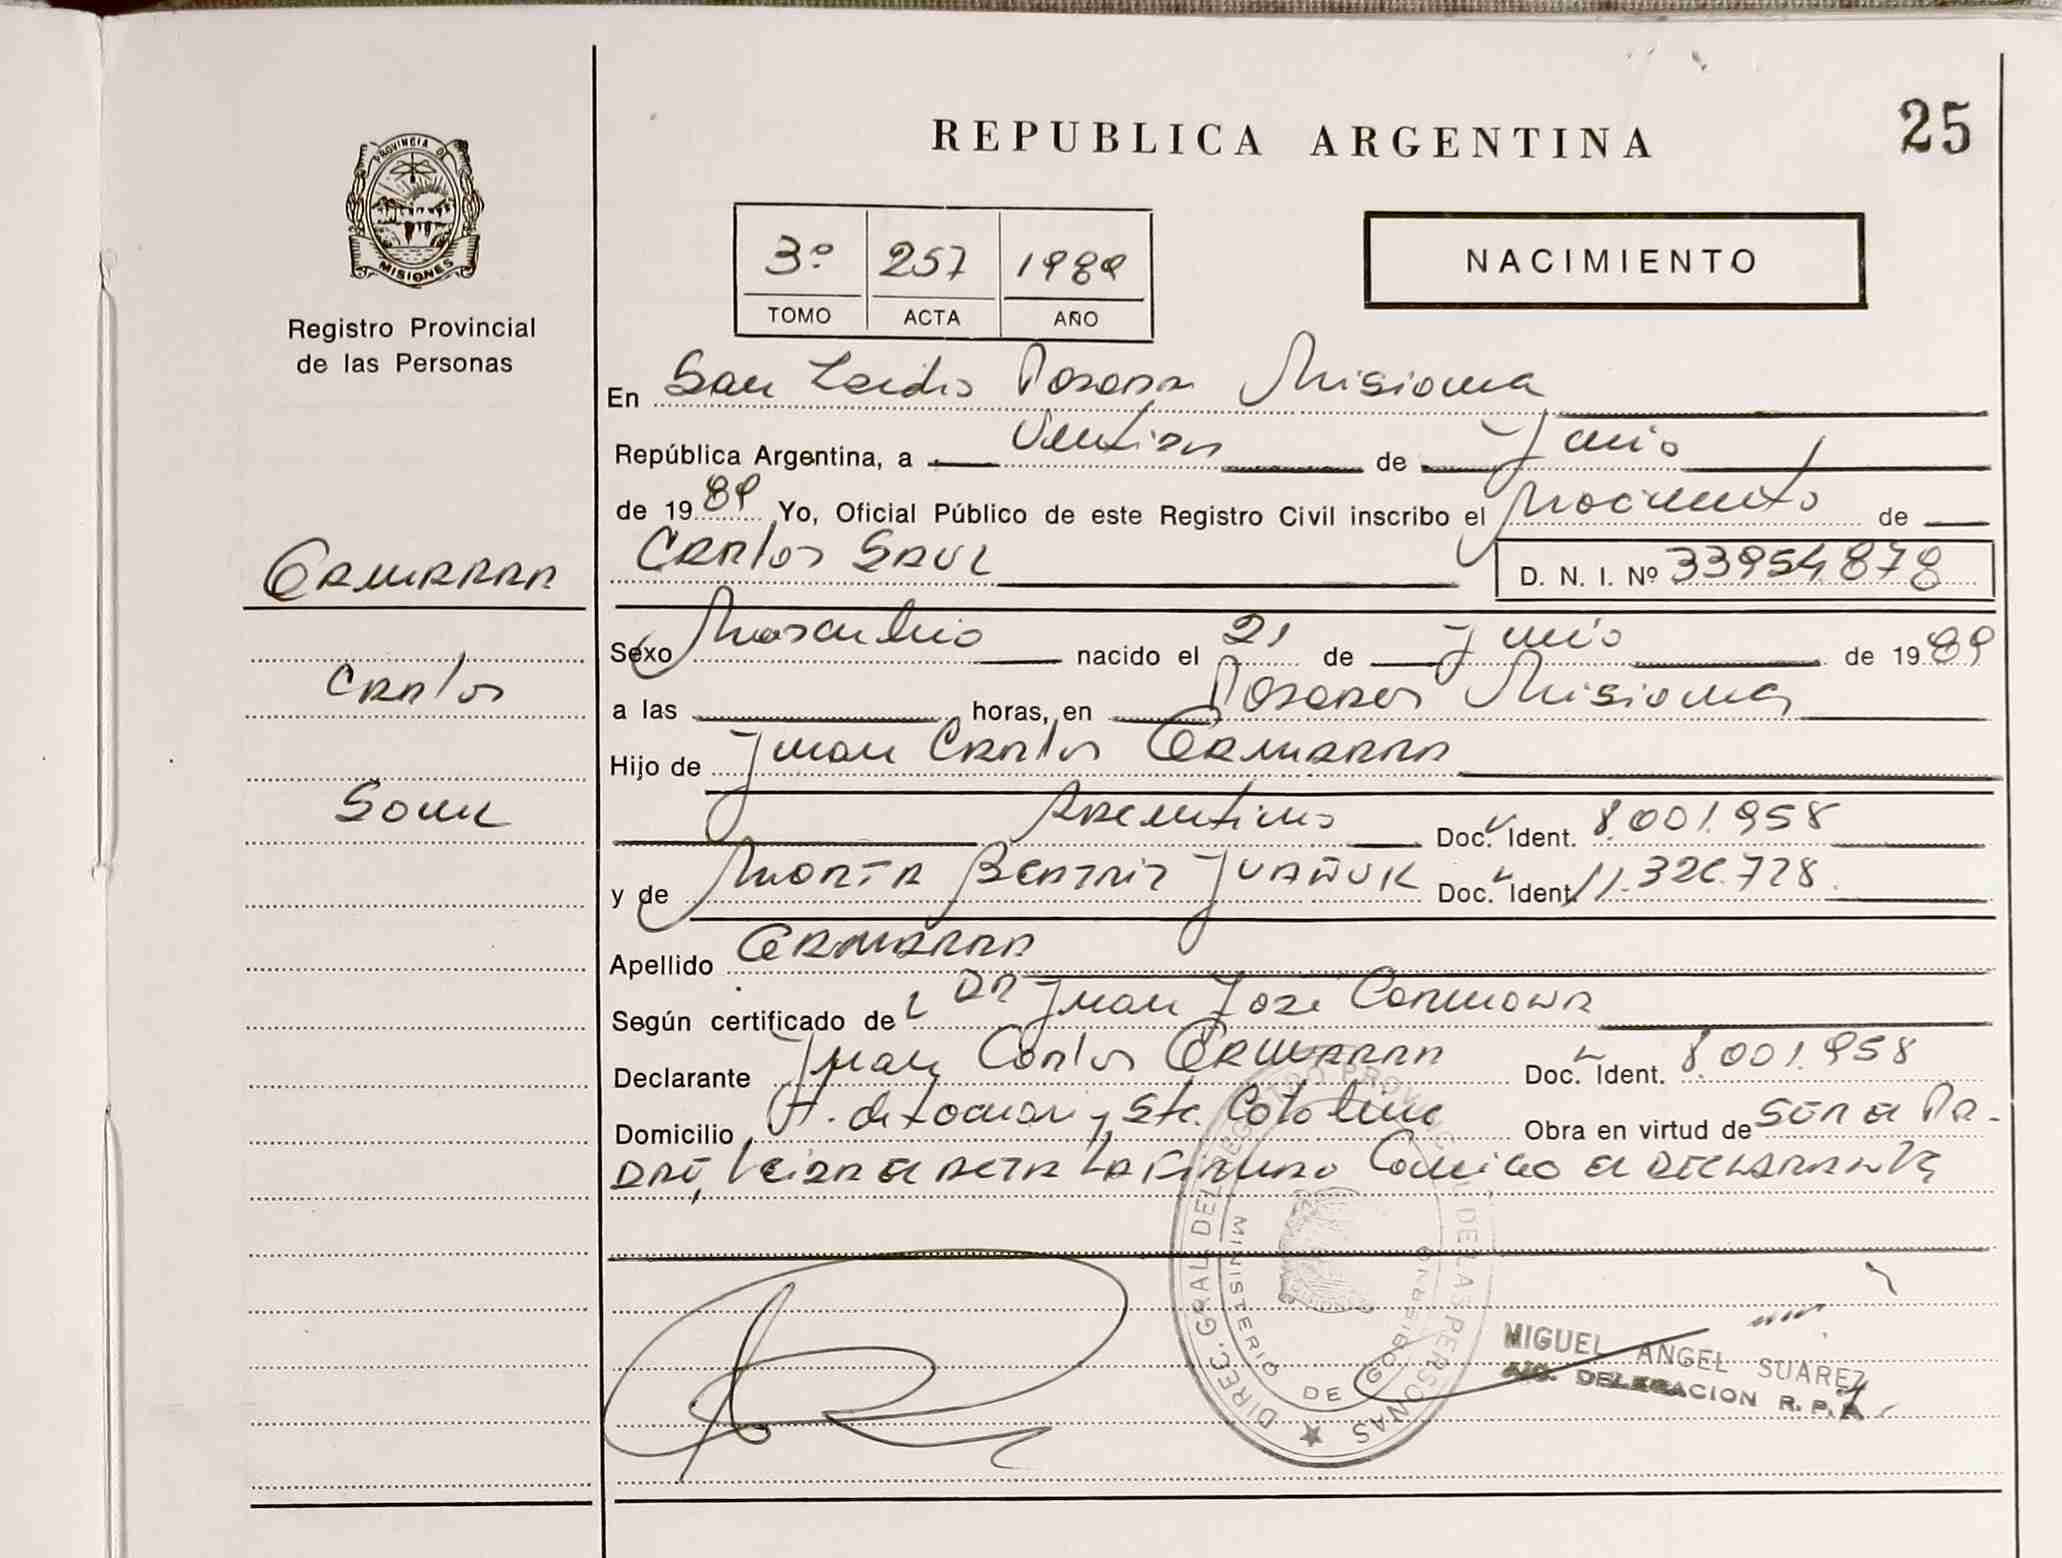 25
REPUBLICA ARGENTINA
PROVINCIA DE
MISIONES
Registro Provincial
de las Personas
3º 257 1989
TOMO ACTA AÑO
NACIMIENTO
En San Posadas Misiones
República Argentina, a de Junio
de 1989 Yo, Oficial Público de este Registro Civil inscribo el Nacimiento de
Carlos SAUL D. N. I. Nº 33954878
Carlos
Saul
Sexo Masculino nacido el 21 de Junio de 1989
a las horas, en Posadas Misiones
Hijo de Juan Carlos
Argentino Doc. Ident. 8.001.958
y de MARTA BEATRIZ Doc. Ident. 11.326.728
Apellido
Según certificado de DR Juan José
Declarante Juan Carlos Doc. Ident. 8.001.958
Domicilio y Sta. Catalina Obra en virtud de SER EL PA-
DRE, Leida el ACTA LA FIRMA Conmigo el DECLARANTE
DIREC. GRAL. DEL REGISTRO PROVINCIAL DE LAS PERSONAS
MINISTERIO DE GOBIERNO
MIGUEL ANGEL SUAREZ
DELEGACION R. P. P.